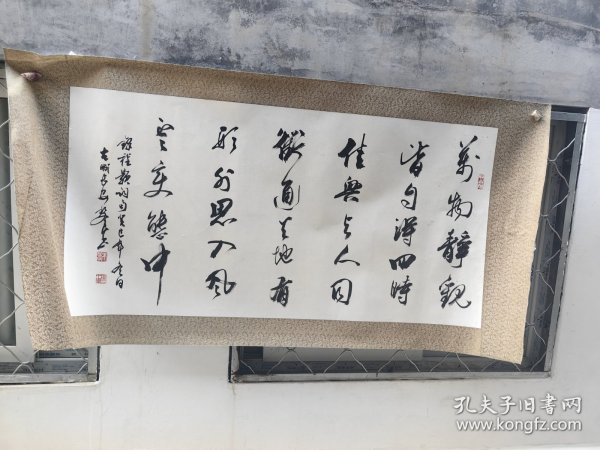 萬物靜觀
皆自得四時
佳興与人同
道通天地有
形外思入風
雲变態中
錄程顥詞句癸巳年
孔夫子旧书网
www.kongfz.com